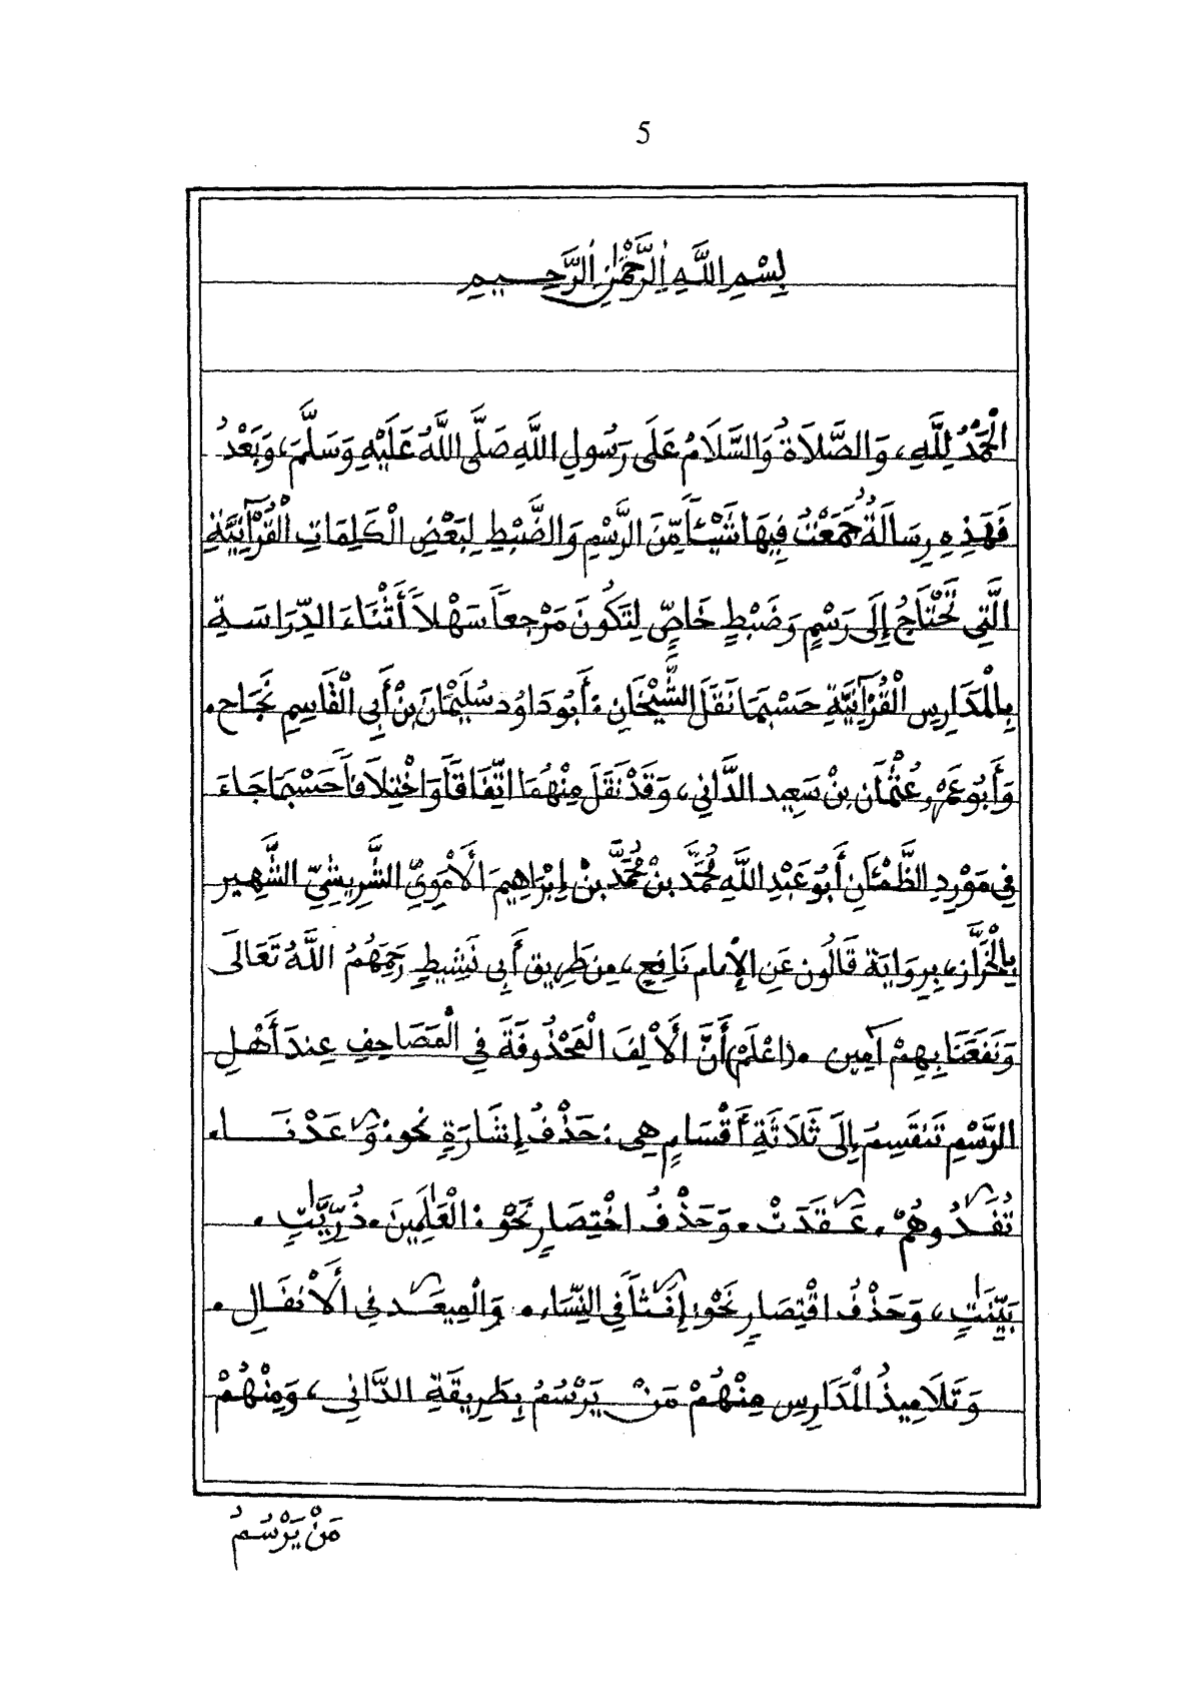 5
بِسْمِ اللَّهِ الرَّحْمَٰنِ الرَّحِيمِ
الْحَمْدُ لِلَّهِ، وَالصَّلَاةُ وَالسَّلَامُ عَلَى رَسُولِ اللَّهِ صَلَّى اللَّهُ عَلَيْهِ وَسَلَّمَ، وَبَعْدُ
فَهَذِهِ رِسَالَةٌ جَمَعْتُ فِيهَا شَيْئاً مِّنَ الرَّسْمِ وَالضَّبْطِ لِبَعْضِ الْكَلِمَاتِ الْقُرْآنِيَّةِ
الَّتِي تَحْتَاجُ إِلَى رَسْمٍ وَضَبْطٍ خَاصٍّ لِتَكُونَ مَرْجِعاً سَهْلاً أَثْنَاءَ الدِّرَاسَةِ
بِالْمَدَارِسِ الْقُرْآنِيَّةِ حَسْبَمَا نَقَلَ الشَّيْخَانِ: أَبُو دَاوُد سُلَيْمَٰنَ بْنُ أَبِي الْقَاسِمِ نَجَاح.
وَأَبُو عَمْرٍو عُثْمَٰانَ بِنْ سَعِيد الدَّانِي، وَقَدْ نَقَلَ مِنْهُمَا اتِّفَاقاً وَاخْتِلَافاً حَسْبَمَا جَاءَ
فِي مَوْرِدِ الظَّمْئَانِ أَبُو عَبْدِ اللَّهِ مُحَمَّد بِنْ مُحَمَّد بِنْ إِبْرَاهِيمَ الْأَمَوِيّ الشَّرِيشِيّ الشَّهِير
بِالْخَرَّازِ، بِرِوَايَةِ قَالُون عَنِ الْإِمَام نَافِعٍ، مِن طَرِيقِ أَبِي نَشِيطٍ رَحِمَهُمُ اللَّهُ تَعَالَى
وَنَفَعَنَا بِهِمْ آمِين. (اعْلَمْ) أَنَّ الْأَلِفَ الْمَحْذُوفَةَ فِي الْمَصَاحِفِ عِندَ أَهْلِ
الرَّسْمِ تَنقَسِمُ إِلَى ثَلَاثَةِ أَقْسَامٍ هِيَ: حَذْفُ إِشَارَةٍ نَحْو: وَٰعَدْنَا.
تُفَٰدُوهُمْ. عَٰقَدَتْ. وَحَذْفُ اخْتِصَارٍ نَحْوَ: الْعَٰلَمِينَ. ذُرِّيَّٰتٍ.
بَيِّنَٰتٍ، وَحَذْفُ اقْتِصَارٍ نَحْوَ: إِنَٰثاً فِي النِّسَاءِ. وَالْمِيعَٰدِ فِي الْأَنفَالِ.
وَتَلَامِيذُ الْمَدَارِسِ مِنْهُمْ مَنْ يَرْسُمُ بِطَرِيقَةِ الدَّانِي، وَمِنْهُمْ
مَنْ يَرْسُمُ